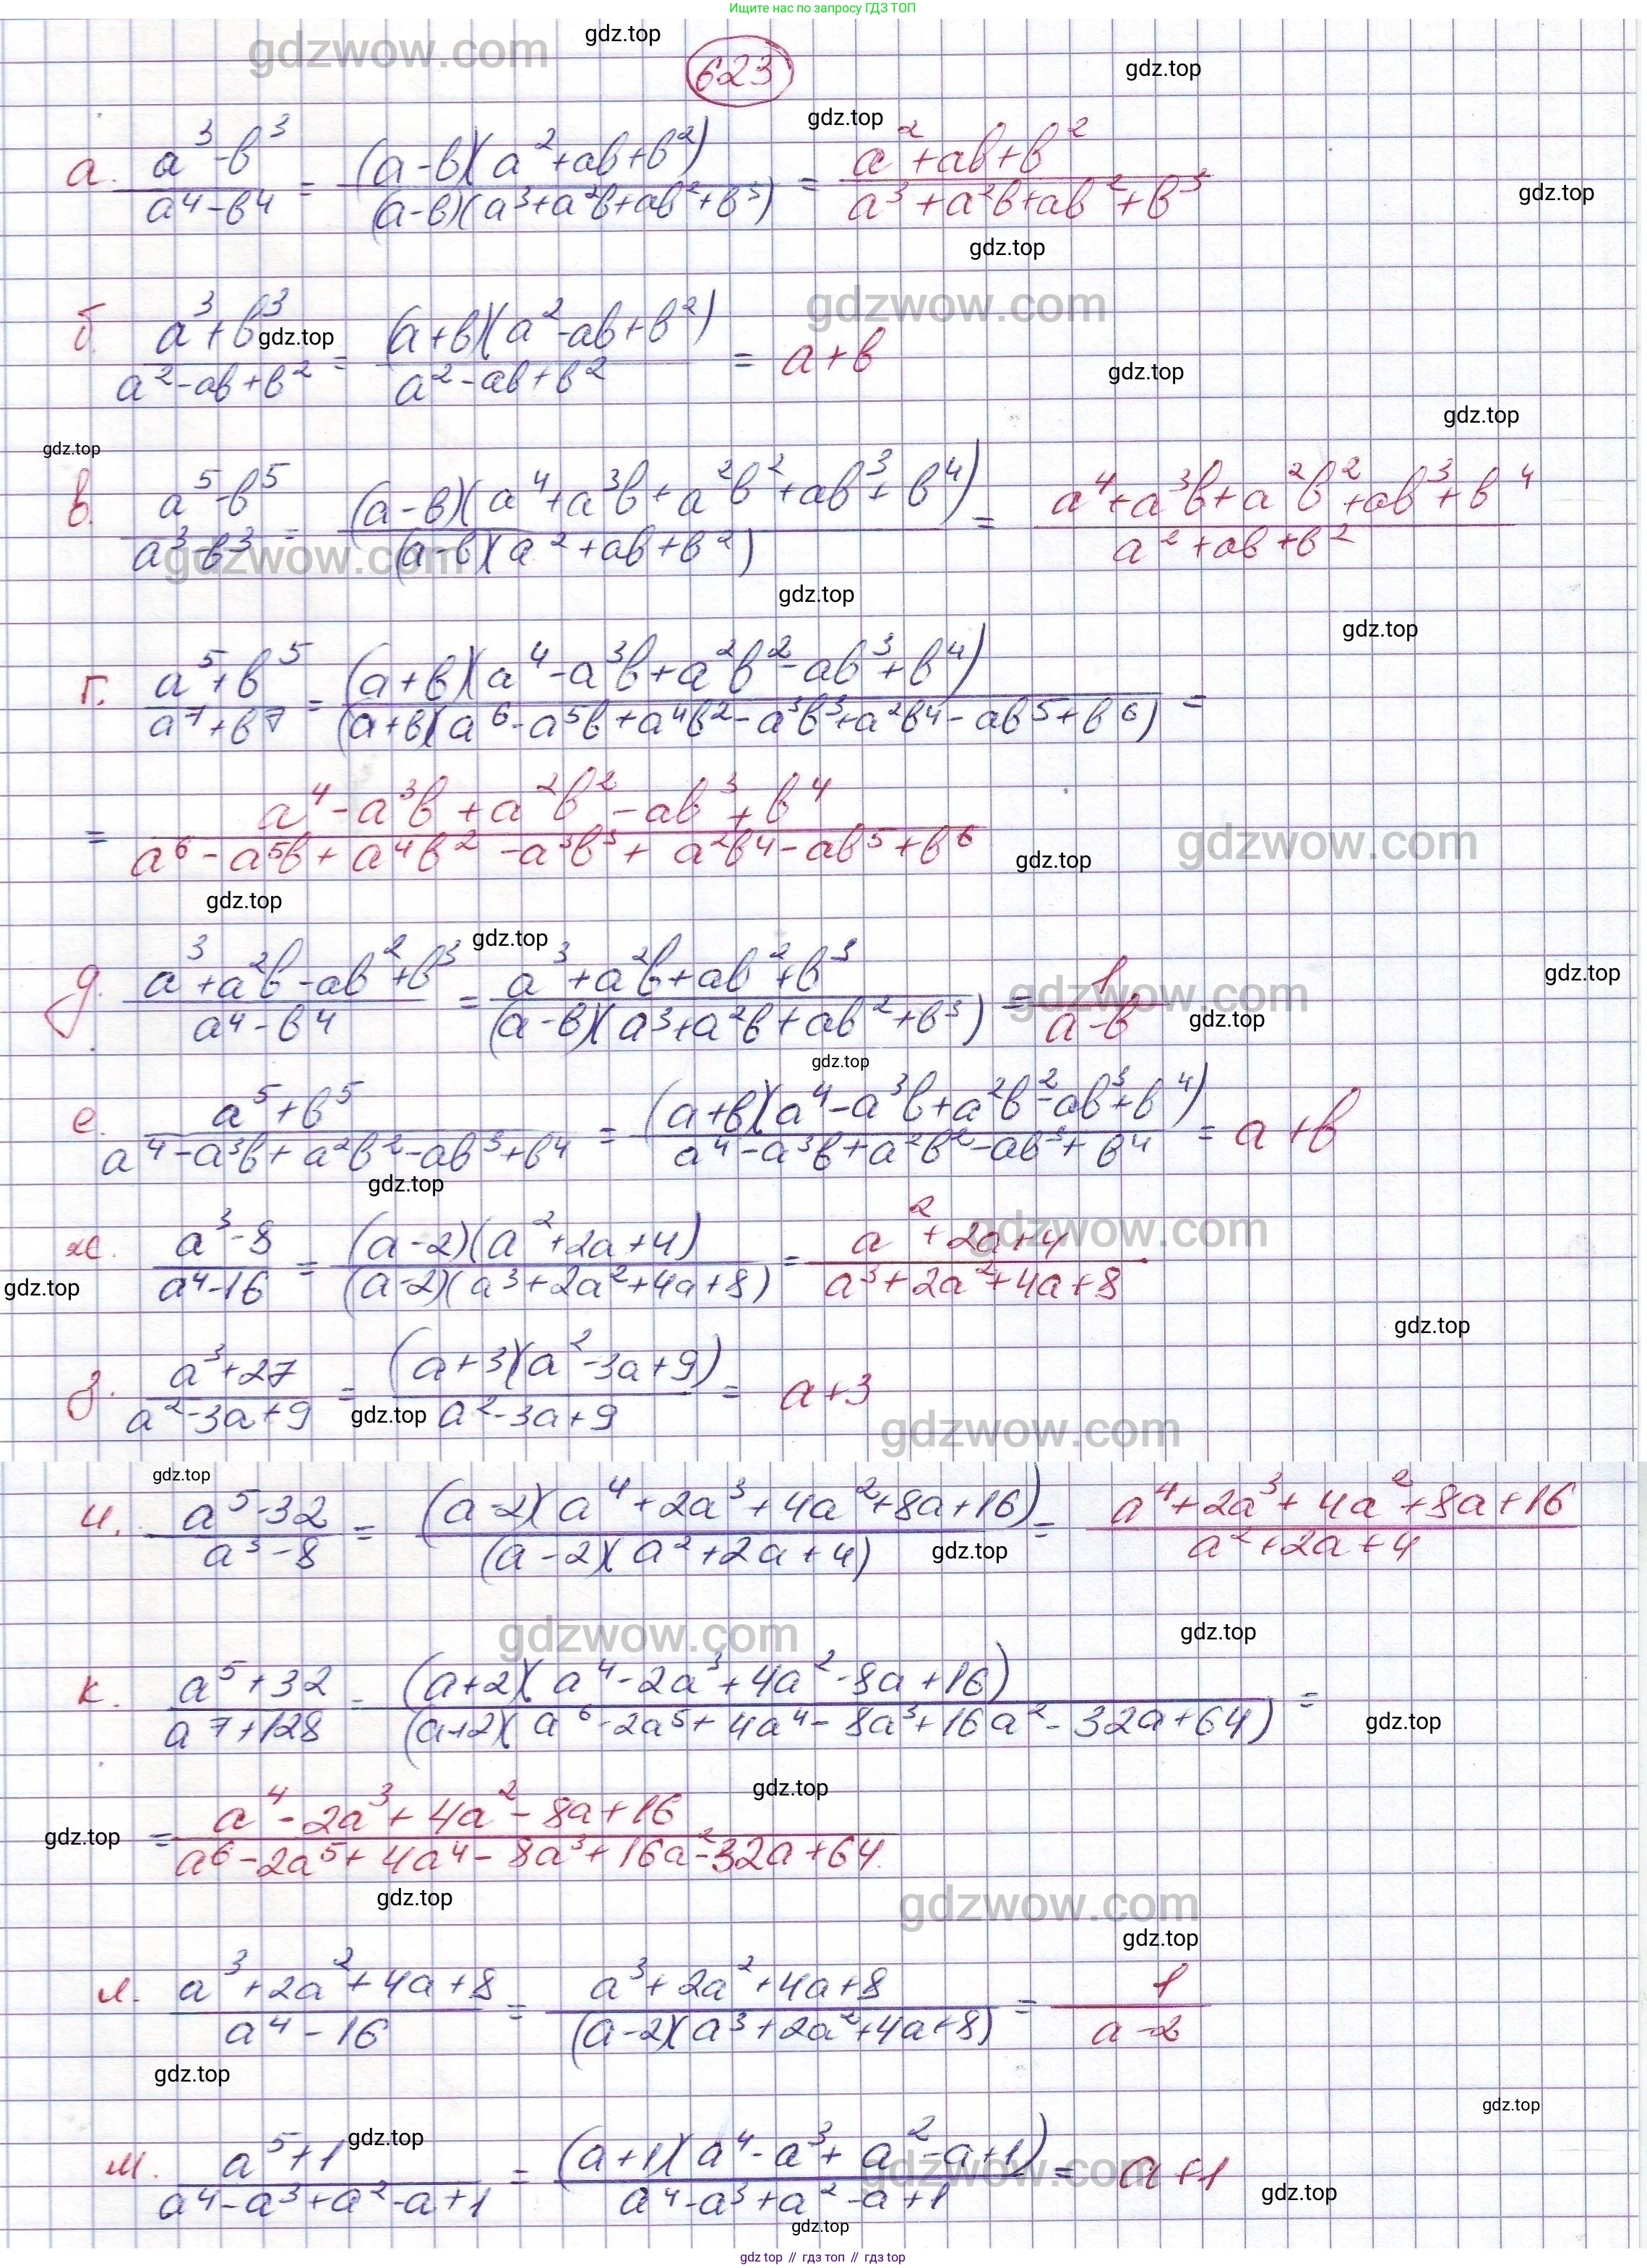 Ищите нас по запросу ГДЗ ТОП
gdzwow.com
gdz.top
623
gdz.top
gdz.top
а. (a³-b³)/(a⁴-b⁴) = ((a-b)(a²+ab+b²))/((a-b)(a³+a²b+ab²+b³)) = (a²+ab+b²)/(a³+a²b+ab²+b³)
gdz.top
gdz.top
gdzwow.com
б. (a³+b³)/(a²-ab+b²) = ((a+b)(a²-ab+b²))/(a²-ab+b²) = a+b
gdz.top
gdz.top
gdz.top
gdz.top
в. (a⁵-b⁵)/(a³-b³) = ((a-b)(a⁴+a³b+a²b²+ab³+b⁴))/((a-b)(a²+ab+b²)) = (a⁴+a³b+a²b²+ab³+b⁴)/(a²+ab+b²)
gdzwow.com
gdz.top
gdz.top
г. (a⁵+b⁵)/(a⁷+b⁷) = ((a+b)(a⁴-a³b+a²b²-ab³+b⁴))/((a+b)(a⁶-a⁵b+a⁴b²-a³b³+a²b⁴-ab⁵+b⁶)) =
= (a⁴-a³b+a²b²-ab³+b⁴)/(a⁶-a⁵b+a⁴b²-a³b³+a²b⁴-ab⁵+b⁶)
gdzwow.com
gdz.top
gdz.top
gdz.top
д. (a³+a²b-ab²+b³)/(a⁴-b⁴) = (a³+a²b+ab²+b³)/((a-b)(a³+a²b+ab²+b³)) = 1/(a-b)
gdz.top
gdzwow.com
gdz.top
gdz.top
е. (a⁵+b⁵)/(a⁴-a³b+a²b²-ab³+b⁴) = ((a+b)(a⁴-a³b+a²b²-ab³+b⁴))/(a⁴-a³b+a²b²-ab³+b⁴) = a+b
gdz.top
gdzwow.com
ж. (a³-8)/(a⁴-16) = ((a-2)(a²+2a+4))/((a-2)(a³+2a²+4a+8)) = (a²+2a+4)/(a³+2a²+4a+8)
gdz.top
gdz.top
з. (a³+27)/(a²-3a+9) = ((a+3)(a²-3a+9))/(a²-3a+9) = a+3
gdz.top
gdzwow.com
gdz.top
и. (a⁵-32)/(a³-8) = ((a-2)(a⁴+2a³+4a²+8a+16))/((a-2)(a²+2a+4)) = (a⁴+2a³+4a²+8a+16)/(a²+2a+4)
gdz.top
gdzwow.com
gdz.top
к. (a⁵+32)/(a⁷+128) = ((a+2)(a⁴-2a³+4a²-8a+16))/((a+2)(a⁶-2a⁵+4a⁴-8a³+16a²-32a+64)) =
gdz.top
gdz.top
= (a⁴-2a³+4a²-8a+16)/(a⁶-2a⁵+4a⁴-8a³+16a²-32a+64)
gdz.top
gdz.top
gdzwow.com
gdz.top
л. (a³+2a²+4a+8)/(a⁴-16) = (a³+2a²+4a+8)/((a-2)(a³+2a²+4a+8)) = 1/(a-2)
gdz.top
gdz.top
gdz.top
м. (a⁵+1)/(a⁴-a³+a²-a+1) = ((a+1)(a⁴-a³+a²-a+1))/(a⁴-a³+a²-a+1) = a+1
gdzwow.com
gdz.top
gdz.top
gdz top // гдз топ // gdz top